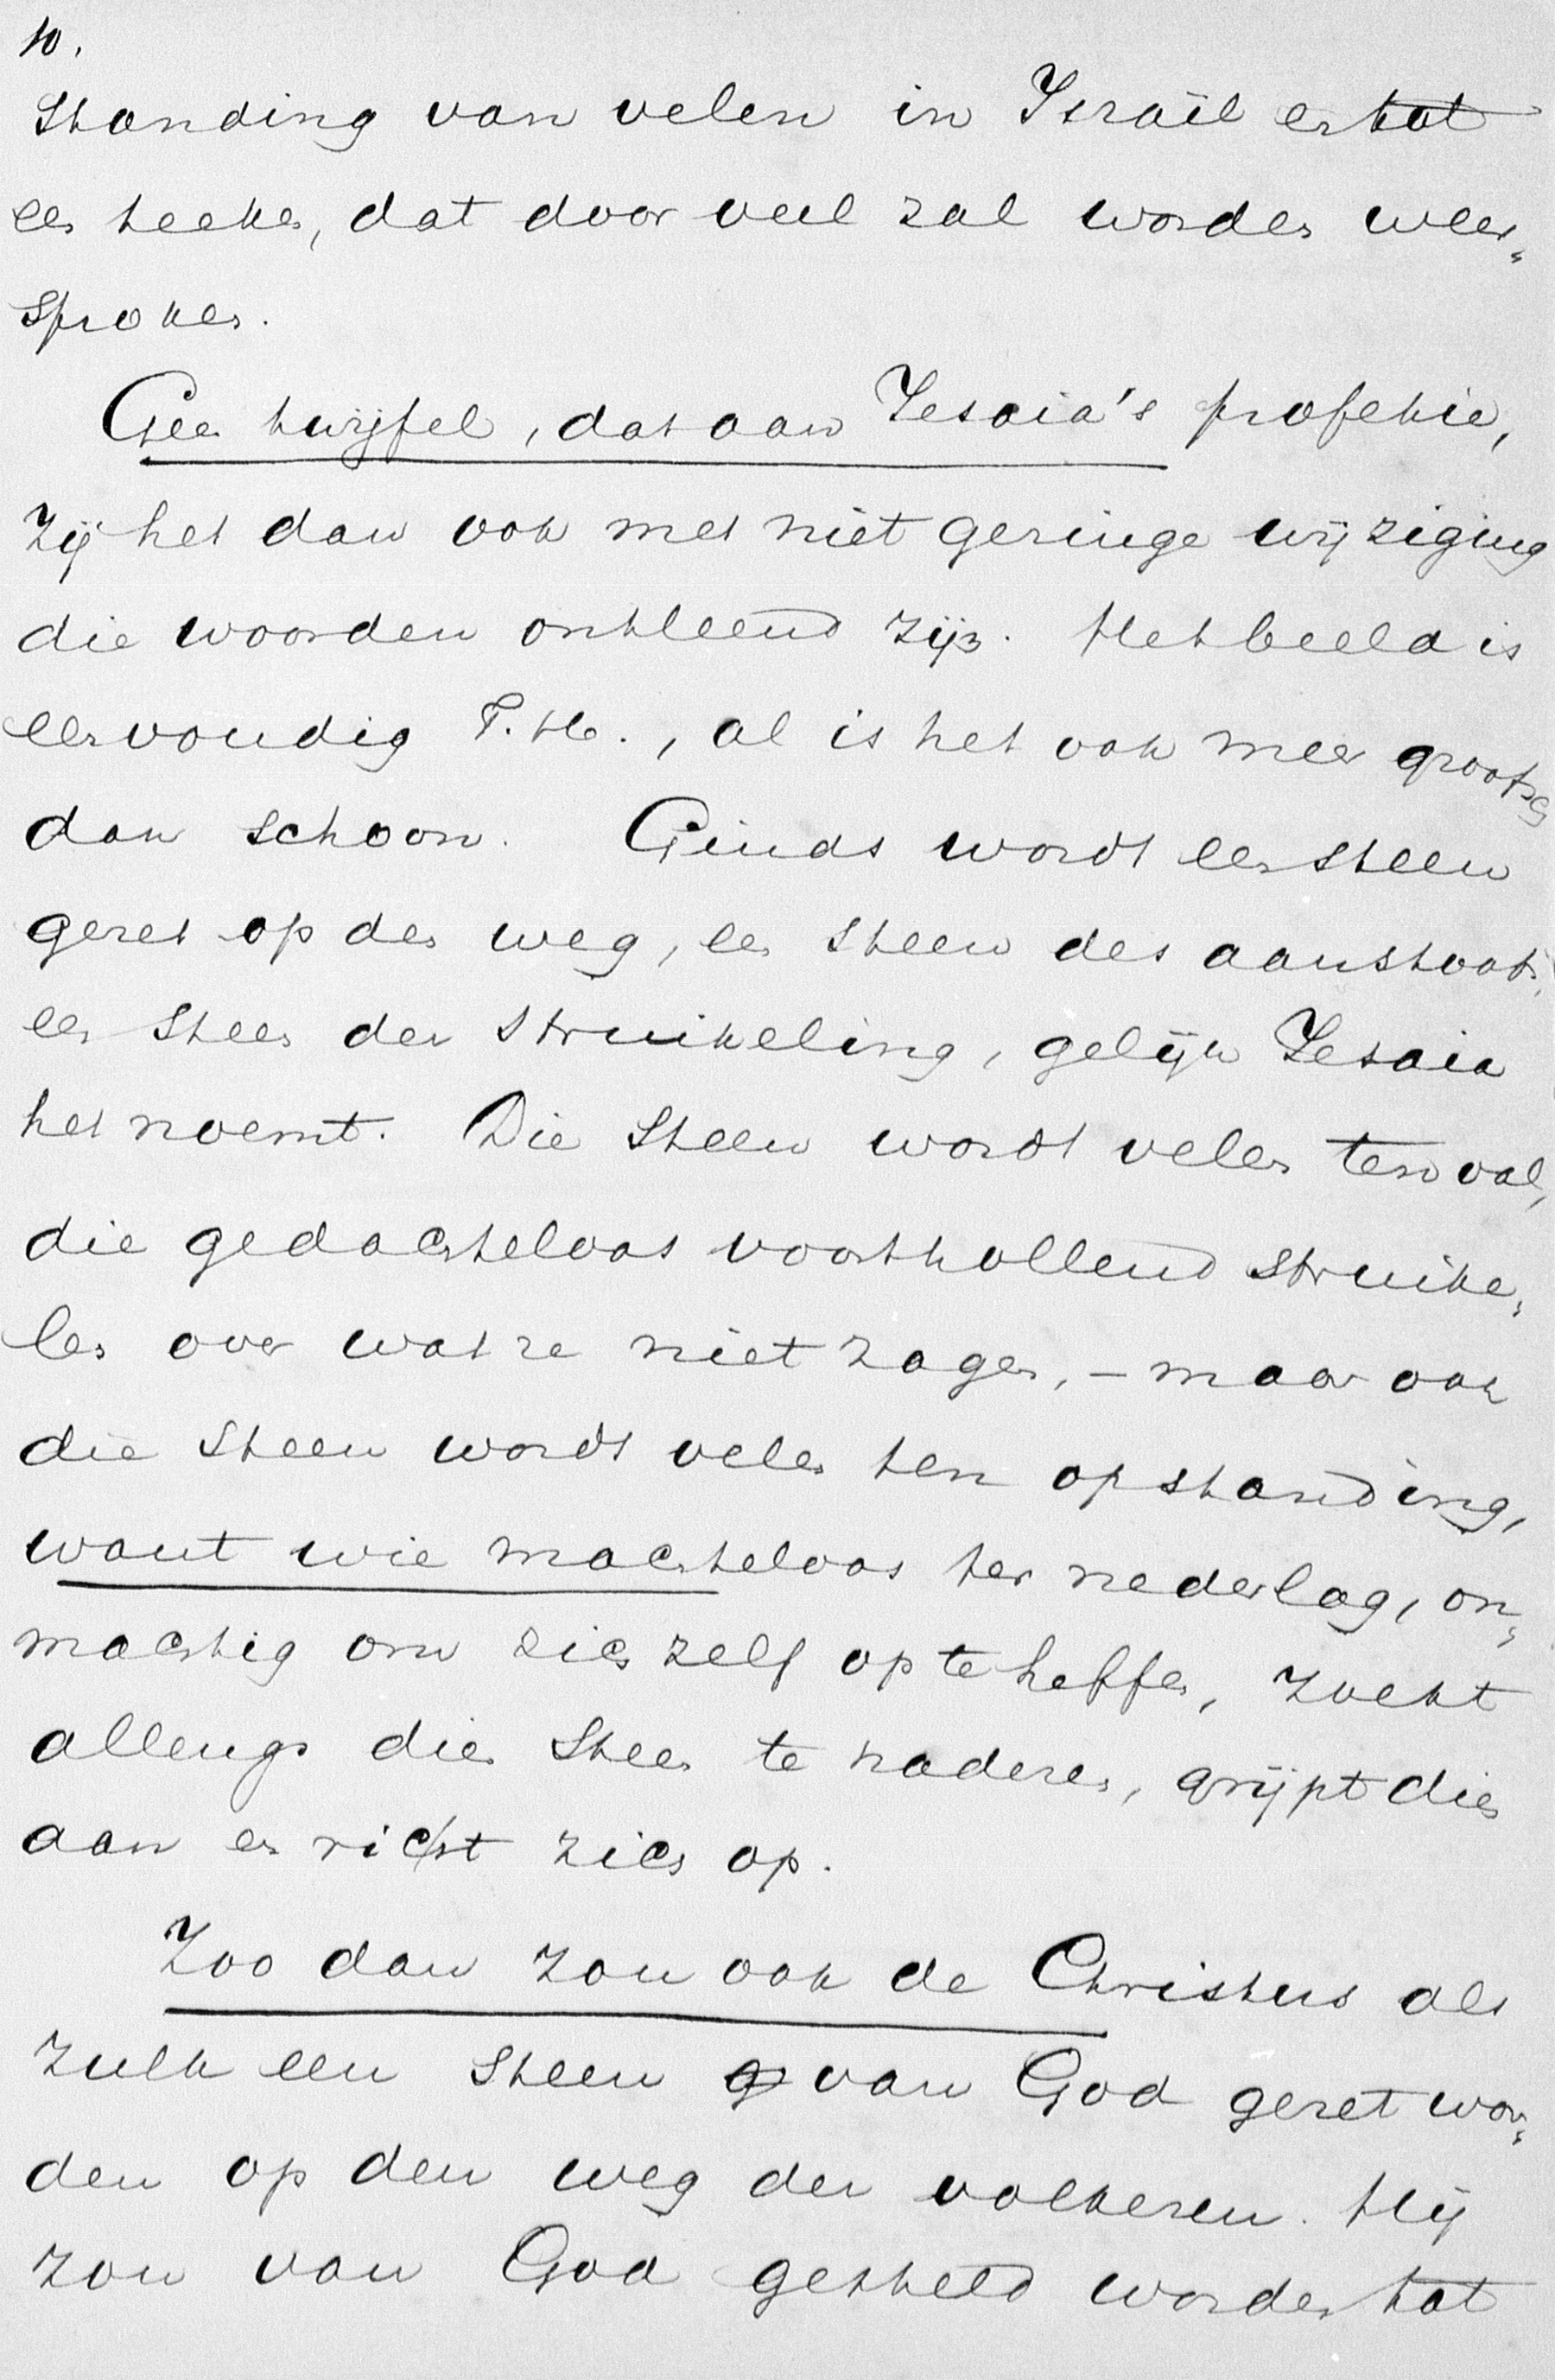 10.
standing van velen in Israël en tot
een teeken, dat door veel zal worden weer„
sproken.
Geen twijfel, dat aan Jesaia's profetie,
zij het dan ook met niet geringe wijziging
die woorden ontleend zijn. Het beeld is
eenvoudig T. H., al is het ook meer grootsch
dan schoon. Ginds wordt een steen
gezet op den weg, een steen des aanstoots,
een steen der struikeling, gelijk Jesaia
het noemt. Die steen wordt velen ten val,
die gedachteloos voorthollend struike„
len over wat ze niet zagen, – maar ook
die steen wordt velen ten opstanding,
want wie machteloos ter nederlag, on„
machtig om zich zelf op te heffen, zoekt
allengs dien steen te naderen, grijpt dien
aan en richt zich op.
Zoo dan zou ook de Christus als
zulk een steen van God gezet wor„
den op den weg der volkeren. Hij
zou van God gesteld worden tot